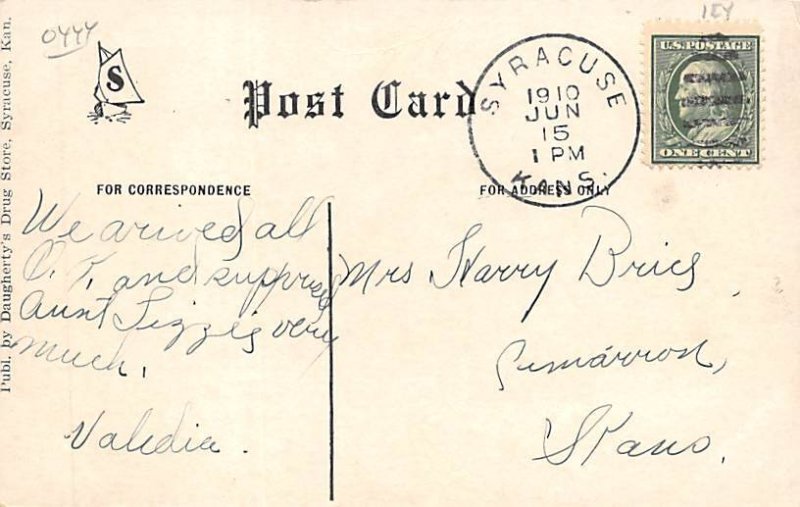 Publ. by Daugherty's Drug Store, Syracuse, Kan.
0444
S
Post Card
SYRACUSE
1910
JUN
15
1 PM
KANS.
1EY
U.S. POSTAGE
ONE CENT
FOR CORRESPONDENCE
FOR ADDRESS ONLY
We arived all
O.K. and supprised
Aunt Lizzie very
much.
Valedia.
Mrs Harry Brics,
Cimarron,
Kans.